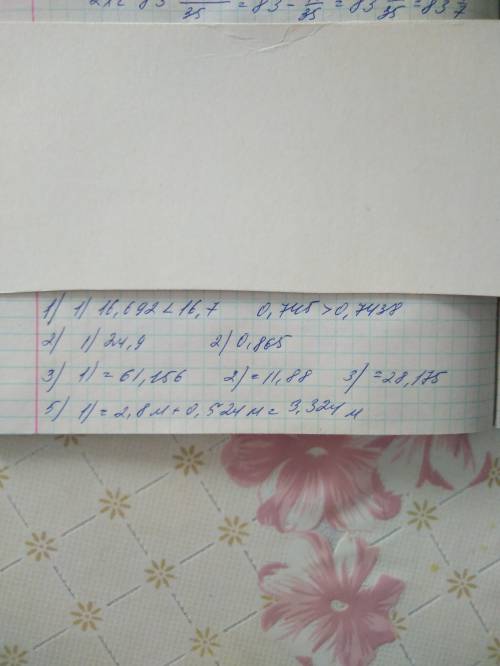 35 = 83 - 35 = 83 35 = 83 7
1) 1) 16,692 < 16,7 0,745 > 0,7438
2) 1) 24,9 2) 0,865
3) 1) = 61,156 2) = 11,88 3) = 28,175
5) 1) = 2,8 м + 0,524 м = 3,324 м